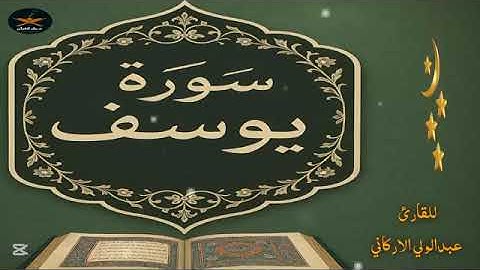 سورة
يوسف
للقارئ
عبدالولي الاركاني